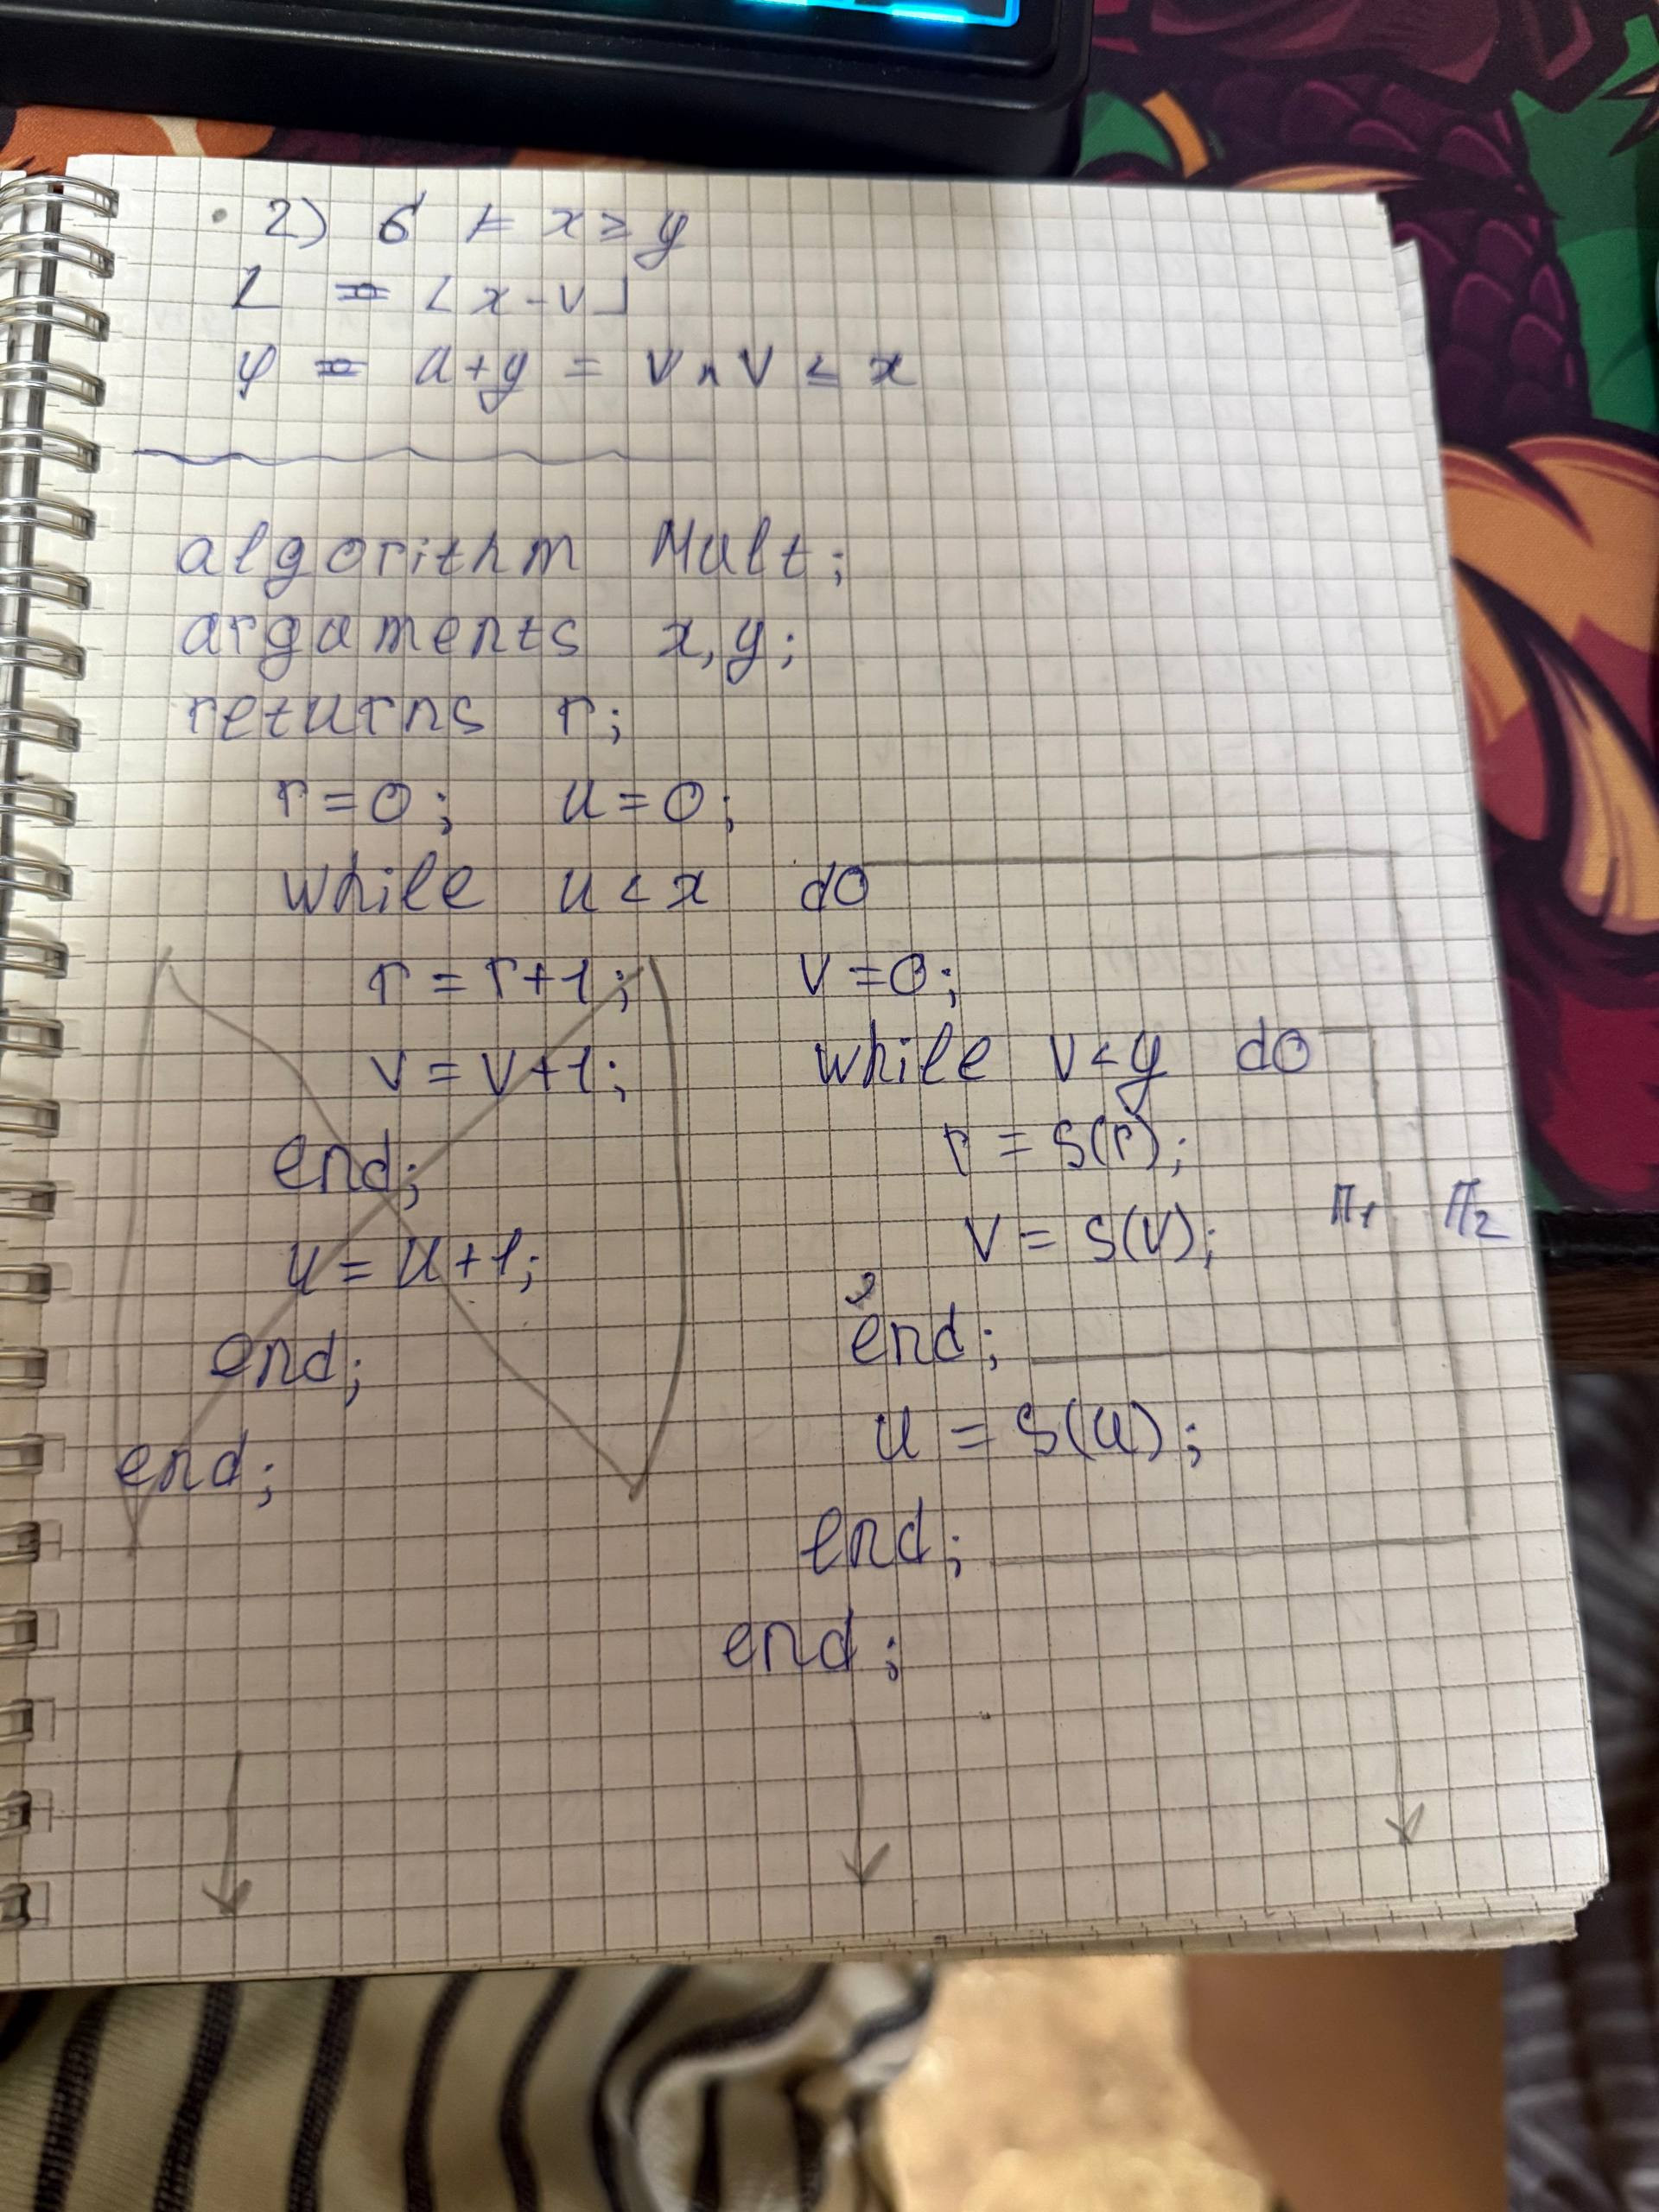 2) σ ⊨ x ≥ y
L ≡ ⌊x-v⌋
φ ≡ u+y = v ∧ v ≤ x
algorithm Mult;
arguments x,y;
returns r;
r=0; u=0;
while u<x do
r=r+1;
v=v+1;
end;
u=u+1;
end;
end;
v=0;
while v<y do
r=s(r);
v=s(v);
end;
u=s(u);
end;
end;
π₁ π₂